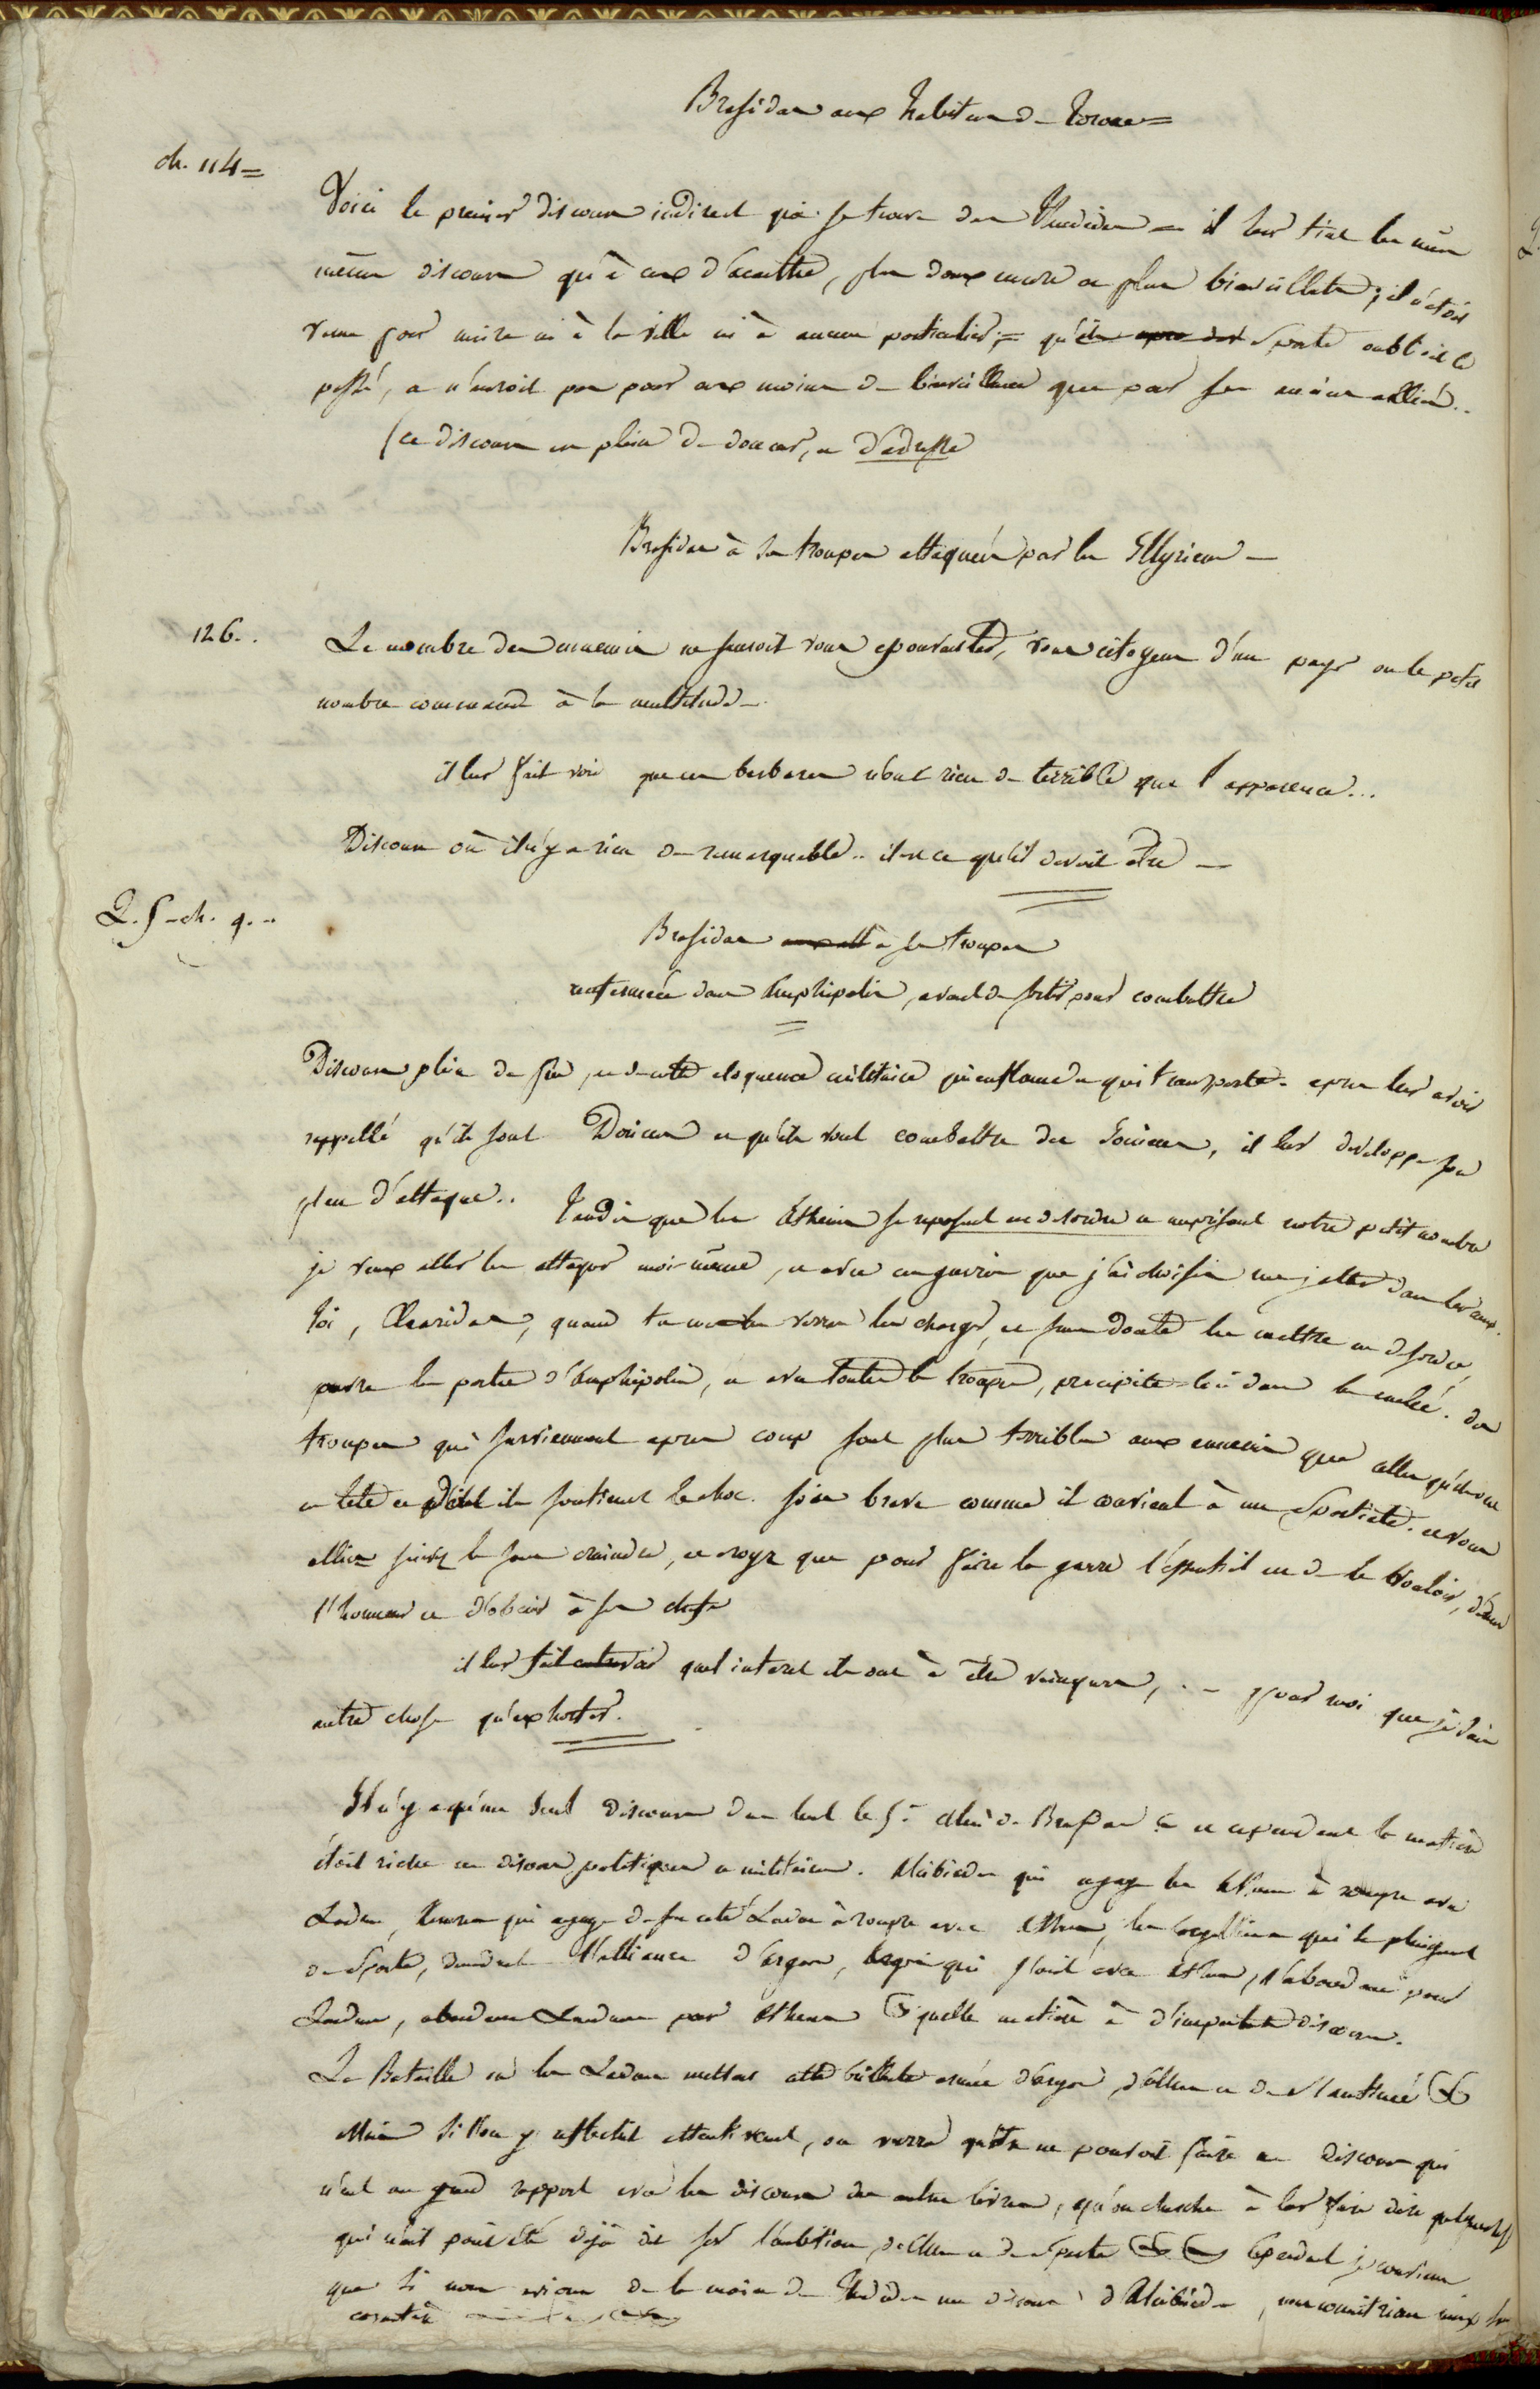 Brasidas aux habitans de Torone =
ch. 114 =
Voici le premier discours indirect qui se trouve dans Thucidide = il leur tint les mêm
mêmes discours qu'à ceux d'Acanthe, plus doux encore et plus bienveillants; il n'étoit
venu pour nuire ni à la ville ni à aucun particulier; = Sparte oubloit le
passé, et n'auroit pas pour eux moins de bienveillance que pour ses anciens alliés..
(ce discours est plein de douceur, et d'adresse
Brasidas à ses troupes attaquées par les Illyriens —
126..
Le nombre des ennemis ne sauroit vous epouvanter, vous citoyens d'un pays ou le petit
nombre commande à la multitude —
il leur fait voir que ces barbares n'ont rien de terrible que l'apparence...
Discours où il n'y a rien de remarquable.. il est ce qu'il devoit être —
L. 5 - ch. 9. -
Brasidas à ses troupes
renfermées dans Amphipolis, avant de sortir pour combattre
Discours plein de feu, et de cette eloquence militaire qui enflamme et qui transporte. après leur avoir
rappellé qu'ils sont Doriens et qu'ils vont combattre des Ioniens, il leur developpe son
plan d'attaque.. Tandis que les Athéniens se reposent en desordre et méprisent notre petit nombre
je veux aller les attaquer moi-même, et avec ces guerriers que j'ai choisis me jetter dans leur camp.
Toi, Cléaridas, quand tu me verras les charger, et sans doute les mettre en desordre,
ouvre les portes d'Amphipolis, et avec toutes les troupes, précipite-toi dans la mêlée. des
troupes qui surviennent après coup sont plus terribles aux ennemis que celles qu'ils ont
en tête et dont ils soutiennent le choc. sois brave comme il convient à un Spartiate. et vous
alliés suivez le sans craindre, et croyez que pour faire la guerre l'essentiel est de le vouloir, d'aimer
l'honneur et d'obéir à ses chefs
il leur fait entrevoir quel interet ils ont à être vainqueurs, . — pour moi que je sais
autre chose qu'exhorter.
Il n'y a qu'un seul discours dans tout le 5e celui de Brasidas et cependant la matière
étoit riche en discours politiques et militaires. Alcibiade qui engage les Athen. à rompre avec
Lacéd., qui engage de son coté Lacéd. à rompre avec Athen, les qui se plaignent
de Sparte, demandent l'alliance d'Argos, Argos qui s'unit avec Athen, l'abandonne pour
Lacédem, abandonne Lacédem pour Athenes quelle matière à d'importants discours.
La Bataille où les Lacédem mettent cette brillante armée d'Argos, d'Athen et de Mantinée &
Mais si l'on y reflechit attentivement, on verra qu'on ne pouvoit faire un discours qui
n'eut un grand rapport avec les discours des autres livres, qu'on cherche à leur faire dire quelque chose
qui n'ait point été déjà dit sur l'ambition d'Athen et de Sparte & & Cependant je conviens
que si nous avions de la main de Thucidide un discours d'Alcibiade, nous connoitrions mieux son
caractère